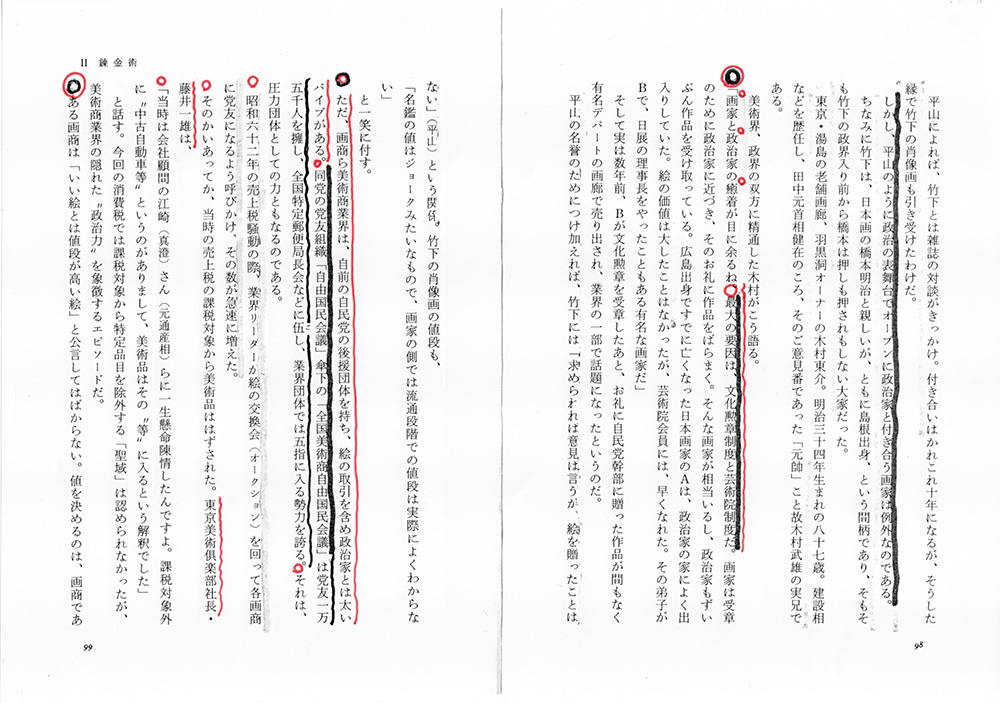 平山によれば、竹下とは雑誌の対談がきっかけ。付き合いはかれこれ十年になるが、そうした
縁で竹下の肖像画も引き受けたわけだ。
しかし、平山のように政治の表舞台でオープンに政治家と付き合う画家は例外なのである。
ちなみに竹下は、日本画の橋本明治と親しいが、ともに島根出身、という間柄であり、そもそ
も竹下の政界入り前から橋本は押しも押されもしない大家だった。
東京・湯島の老舗画廊、羽黒洞オーナーの木村東介。明治三十四年生まれの八十七歳。建設相
などを歴任し、田中元首相健在のころ、そのご意見番であった「元帥」こと故木村武雄の実兄で
ある。
美術界、政界の双方に精通した木村がこう語る。
「画家と政治家の癒着が目に余るね。最大の要因は、文化勲章制度と芸術院制度だ。画家は受章
のために政治家に近づき、そのお礼に作品をばらまく。そんな画家が相当いるし、政治家もずい
ぶん作品を受け取っている。広島出身ですでに亡くなった日本画家のAは、政治家の家によく出
入りしていた。絵の価値は大したことはなかったが、芸術院会員には、早くなれた。その弟子が
Bで、日展の理事長をやったこともある有名な画家だ」
そして実は数年前、Bが文化勲章を受章したあと、お礼に自民党幹部に贈った作品が間もなく
有名デパートの画廊で売り出され、業界の一部で話題になったというのだ。
平山の名誉のためにつけ加えれば、竹下には「求められれば意見は言うが、絵を贈ったことは
98
II 錬金術
ない」（平山）という関係。竹下の肖像画の値段も、
「名鑑の値はジョークみたいなもので、画家の側では流通段階での値段は実際によくわからな
い」
と一笑に付す。
ただ、画商ら美術商業界は、自前の自民党の後援団体を持ち、絵の取引を含め政治家とは太い
パイプがある。同党の党友組織「自由国民会議」傘下の「全国美術商自由国民会議」は党友一万
五千人を擁し、全国特定郵便局長会などに伍し、業界団体では五指に入る勢力を誇る。それは、
圧力団体としての力ともなるのである。
昭和六十二年の売上税騒動の際、業界リーダーが絵の交換会（オークション）を回って各画商
に党友になるよう呼びかけ、その数が急速に増えた。
そのかいあってか、当時の売上税の課税対象から美術品ははずされた。東京美術俱楽部社長・
藤井一雄は、
「当時は会社顧問の江崎（真澄）さん（元通産相）らに一生懸命陳情したんですよ。課税対象外
に〝中古自動車等〟というのがありまして、美術品はその〝等〟に入るという解釈でした」
と話す。今回の消費税では課税対象から特定品目を除外する「聖域」は認められなかったが、
美術商業界の隠れた〝政治力〟を象徴するエピソードだ。
ある画商は「いい絵とは値段が高い絵」と公言してはばからない。値を決めるのは、画商であ
99